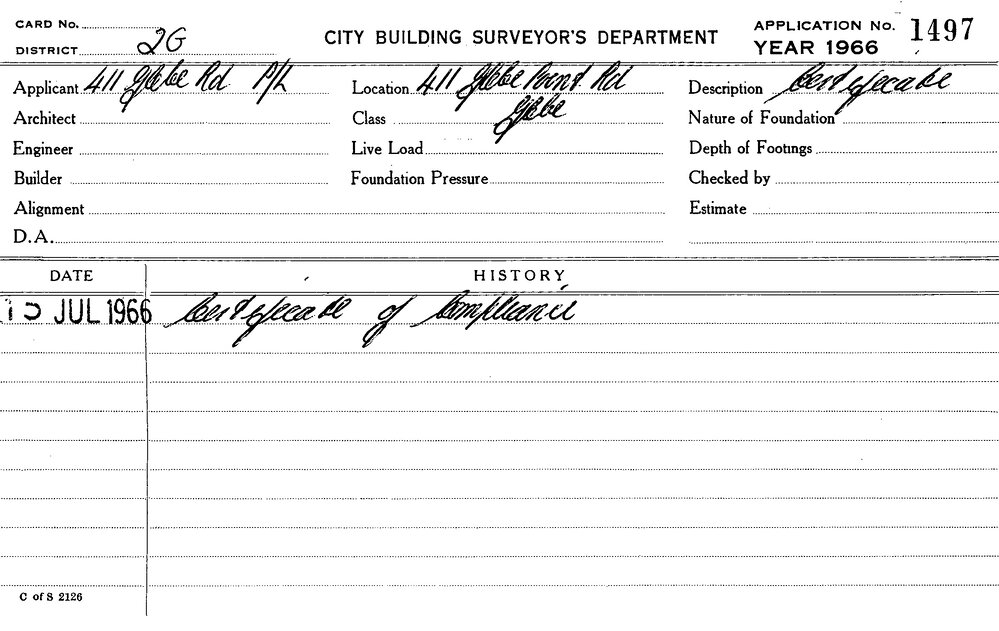 CARD No.
DISTRICT 2G
CITY BUILDING SURVEYOR'S DEPARTMENT
APPLICATION No. 1497
YEAR 1966
Applicant 411 Glebe Rd P/L
Location 411 Glebe Point Rd
Description Certificate
Architect
Class Glebe
Nature of Foundation
Engineer
Live Load
Depth of Footings
Builder
Foundation Pressure
Checked by
Alignment
Estimate
D.A.
DATE
HISTORY
JUL 1966 Certificate of Compliance
C of S 2126